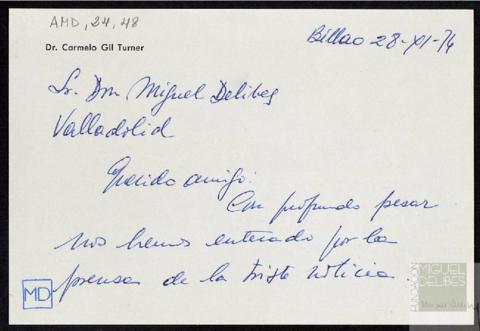 AMD, 24, 48
Dr. Carmelo Gil Turner
Bilbao 28-XI-74
Sr. Don Miguel Delibes
Valladolid
Querido amigo:
Con profundo pesar
nos hemos enterado por la
prensa de la triste noticia.
MD
FUNDACIÓN
MIGUEL
DELIBES